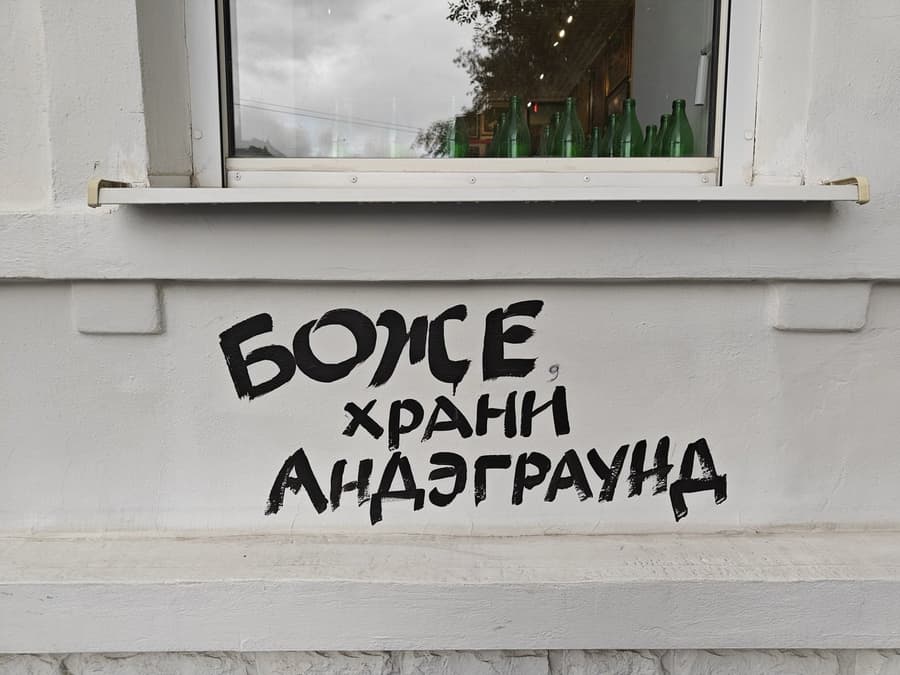 БОЖЕ,
ХРАНИ
АНДЭГРАУНД